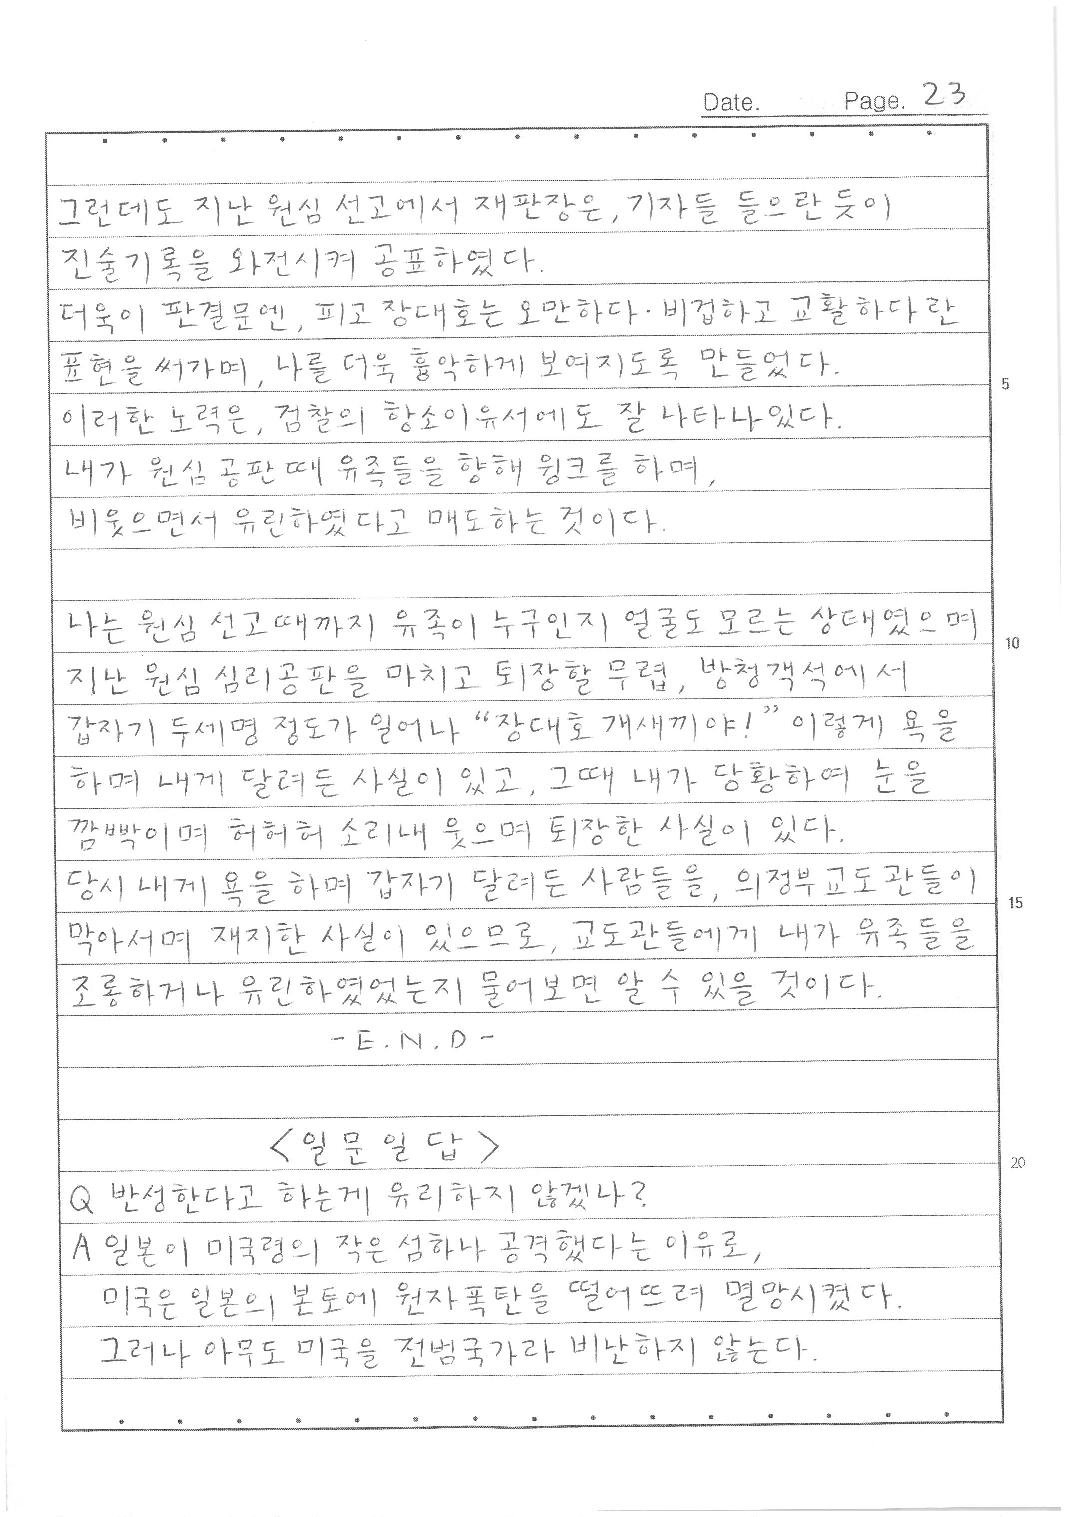 Date. Page. 23
그런데도 지난 원심 선고에서 재판장은, 기자들 들으란 듯이
진술기록을 와전시켜 공표하였다.
더욱이 판결문엔, 피고 장대호는 오만하다·비겁하고 교활하다란
표현을 써가며, 나를 더욱 흉악하게 보여지도록 만들었다.
5
이러한 노력은, 검찰의 항소이유서에도 잘 나타나있다.
내가 원심 공판 때 유족들을 향해 윙크를 하며,
비웃으면서 유린하였다고 매도하는 것이다.
나는 원심 선고때까지 유족이 누구인지 얼굴도 모르는 상태였으며
10
지난 원심 심리공판을 마치고 퇴장할 무렵, 방청객석에서
갑자기 두세명 정도가 일어나 “장대호 개새끼야!” 이렇게 욕을
하며 내게 달려든 사실이 있고, 그때 내가 당황하여 눈을
깜빡이며 허허허 소리내 웃으며 퇴장한 사실이 있다.
당시 내게 욕을 하며 갑자기 달려든 사람들을, 의정부교도관들이
15
막아서며 재지한 사실이 있으므로, 교도관들에게 내가 유족들을
조롱하거나 유린하였었는지 물어보면 알 수 있을 것이다.
- E.N.D -
<일문일답>
20
Q 반성한다고 하는게 유리하지 않겠나?
A 일본이 미국령의 작은 섬하나 공격했다는 이유로,
미국은 일본의 본토에 원자폭탄을 떨어뜨려 멸망시켰다.
그러나 아무도 미국을 전범국가라 비난하지 않는다.